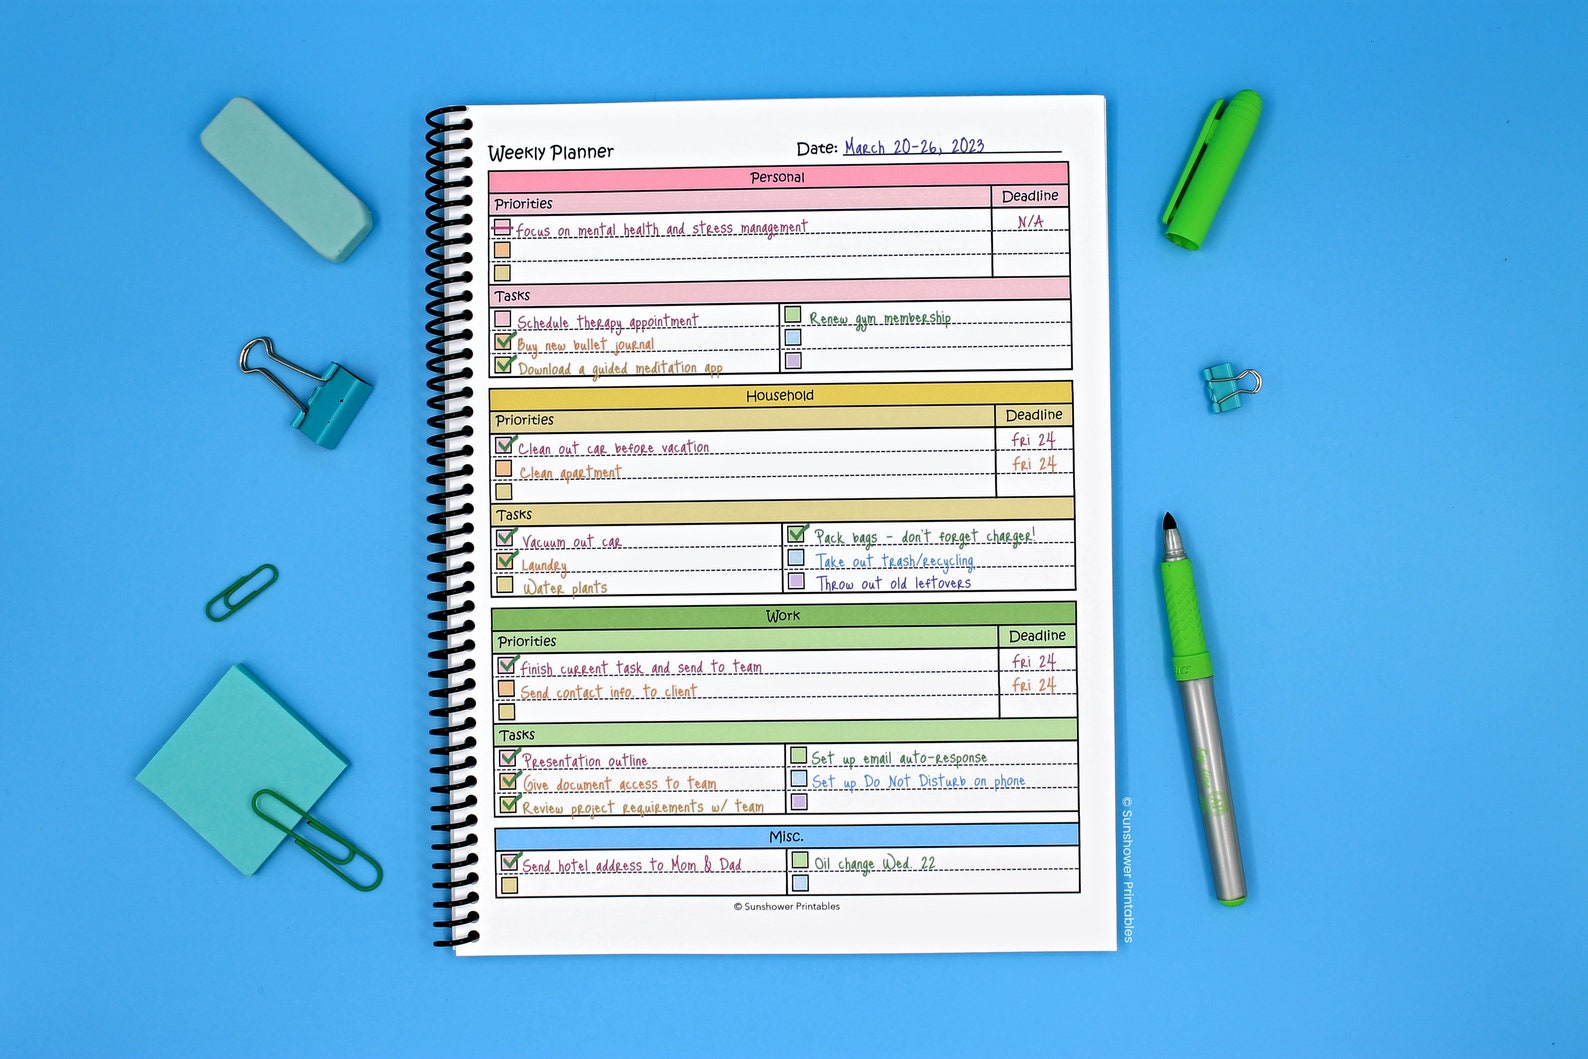 Weekly Planner Date: March 20-26, 2023
Personal
Priorities Deadline
Focus on mental health and stress management N/A
Tasks
Schedule therapy appointment Renew gym membership
Buy new bullet journal
Download a guided meditation app
Household
Priorities Deadline
Clean out car before vacation Fri 24
Clean apartment Fri 24
Tasks
Vacuum out car Pack bags - don't forget charger!
Laundry Take out trash/recycling
Water plants Throw out old leftovers
Work
Priorities Deadline
Finish current task and send to team Fri 24
Send contact info. to client Fri 24
Tasks
Presentation outline Set up email auto-response
Give document access to team Set up Do Not Disturb on phone
Review project requirements w/ team
Misc.
Send hotel address to Mom & Dad Oil change Wed. 22
© Sunshower Printables
© Sunshower Printables